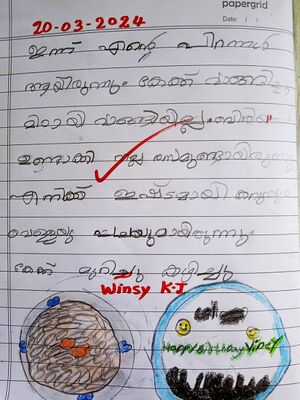 papergrid
Date: / /
20-03-2024
ഇന്ന് എന്റെ പിറന്നാൾ
ആയിരുന്നു. കേക്ക് വാങ്ങിച്ചു
മിഠായി വാങ്ങിയില്ല. ബിരിയാണി
ഉണ്ടാക്കി നല്ല രസമുണ്ടായിരുന്നു
എനിക്ക് ഇഷ്ടമായി
വെള്ളയും പച്ചയുമായിരുന്നും
കേക്ക് മുറിച്ചു കഴിച്ചു
Winsy K.J
Happy Birthday Vincy